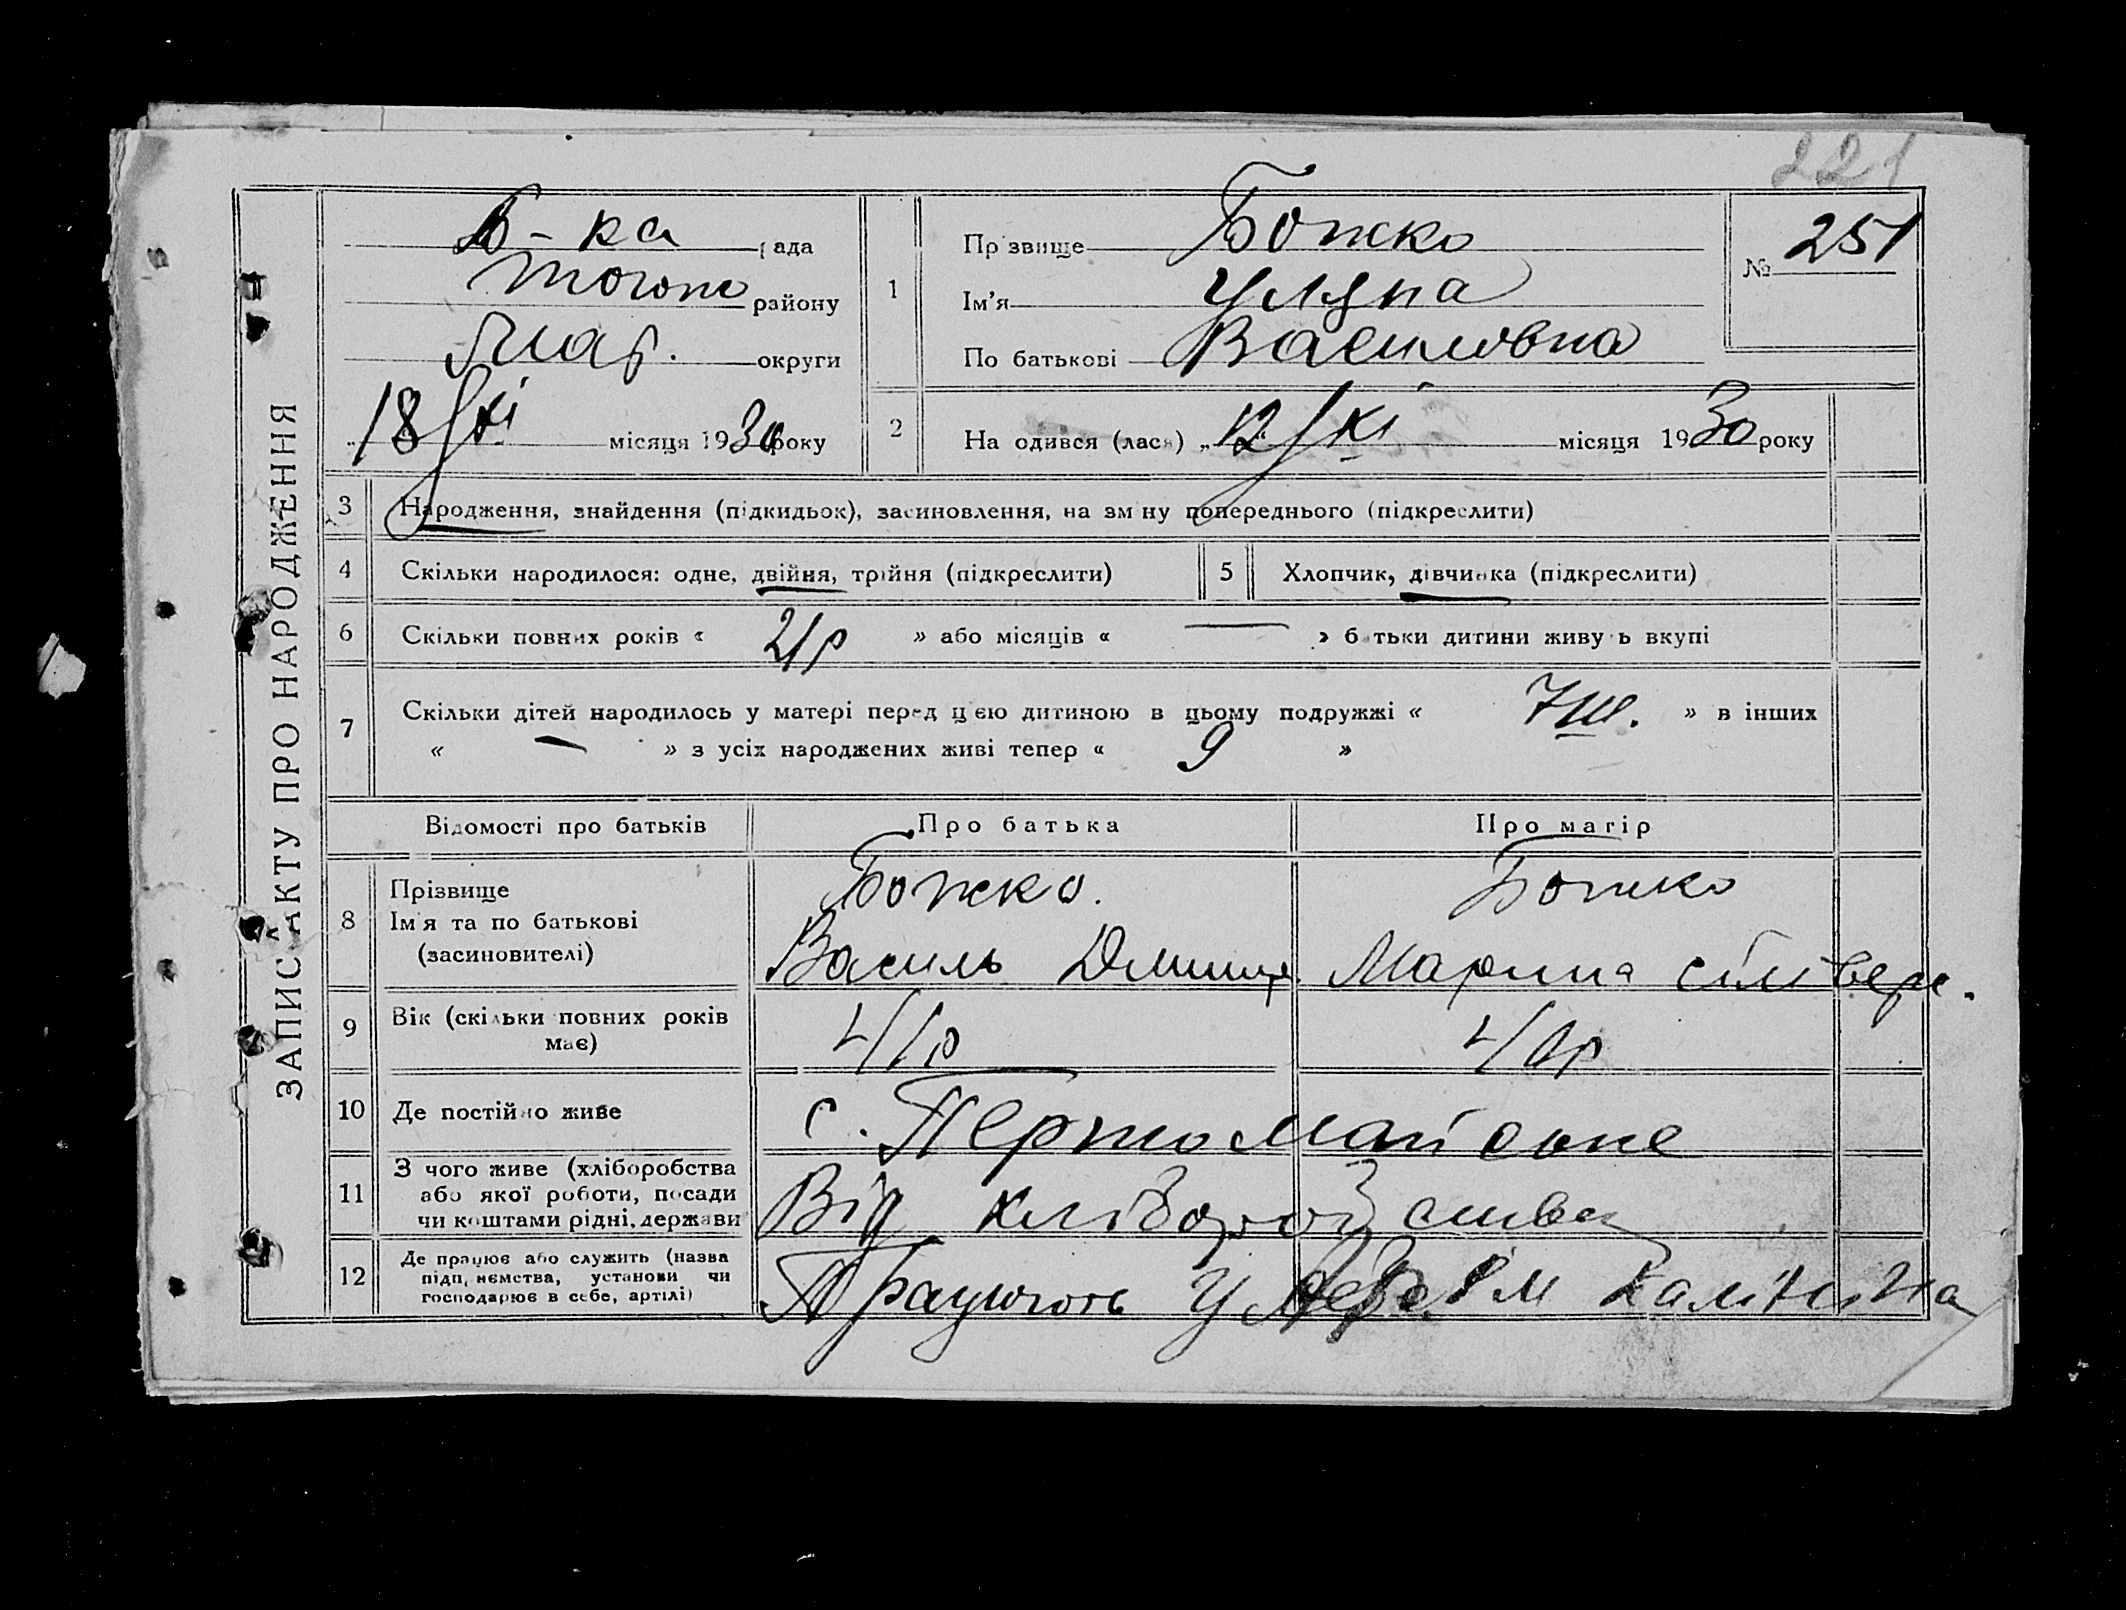 221
ЗАПИС АКТУ ПРО НАРОДЖЕННЯ
Б-ка рада
району
округи
18/XI місяця 1930 року
1 Прізвище Божко
Ім'я Уляна
По батькові Василовна
№ 251
2 Народився (лася) „12/XI місяця 1930 року
3 Народження, знайдення (підкидьок), засиновлення, на зміну попереднього (підкреслити)
4 Скільки народилося: одне, двійня, трійня (підкреслити) 5 Хлопчик, дівчинка (підкреслити)
6 Скільки повних років « 21р » або місяців « — » батьки дитини живуть вкупі
7 Скільки дітей народилось у матері перед цією дитиною в цьому подружжі « » в інших
« — » з усіх народжених живі тепер « 9 »
Відомості про батьків Про батька Про матір
8 Прізвище
Ім'я та по батькові
(засиновителі)
Божко. Божко
Василь Марина
9 Вік (скільки повних років
має)
41р 40р
10 Де постійно живе с. Першомайське
11 З чого живе (хліборобства
або якої роботи, посади
чи коштами рідні, держави
Від хліборобства
12 Де працює або служить (назва
підприємства, установи чи
господарює в себе, артілі)
Працюють у ім Калініна